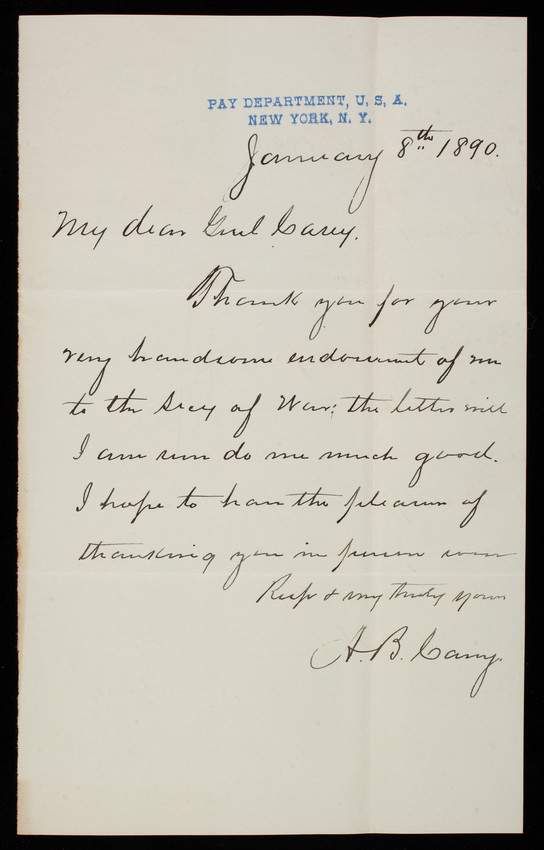 PAY DEPARTMENT, U, S, A.
NEW YORK, N. Y.
January 8th 1890.
My dear Genl Casey.
Thank you for your
very handsome endorsement of me
to the Secy of War; the letter will
I am sure do me much good.
I hope to have the pleasure of
thanking you in person soon
Resp & very truly yours
A. B. Carey.